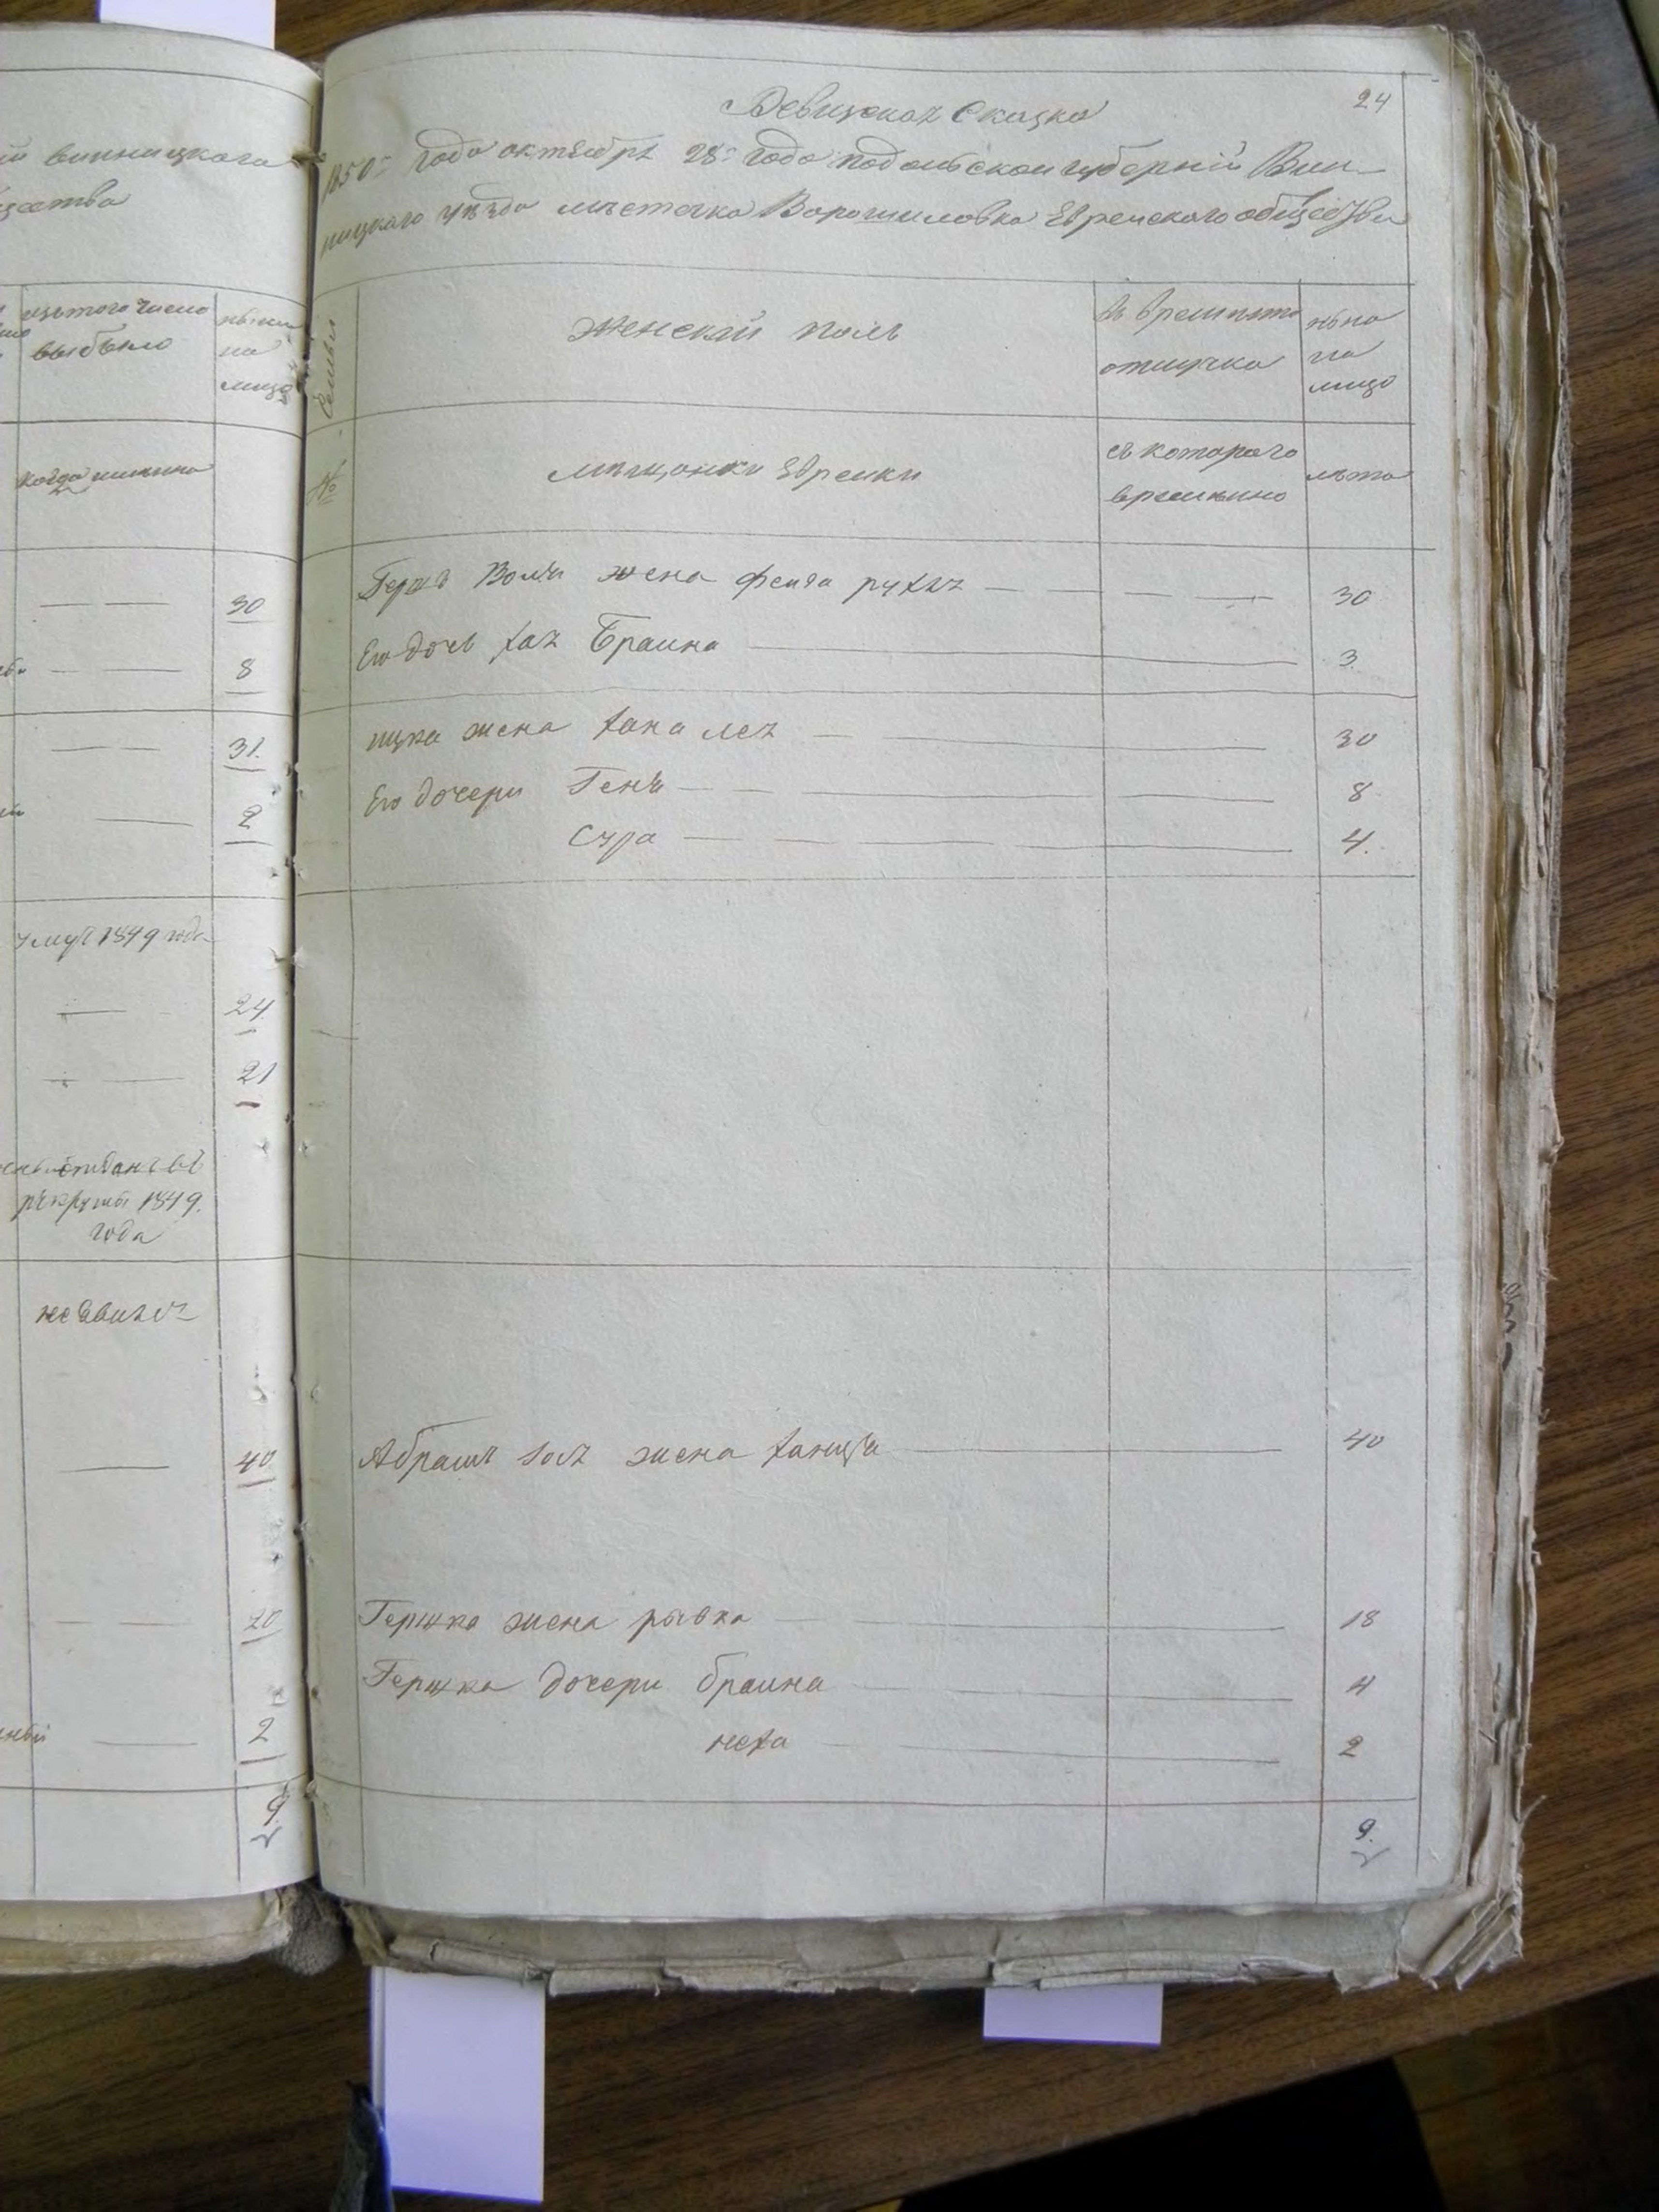 винницкаго
изътого число
выбыло
ныне
на
лицо
когда имянно
30
8
31.
2
умеръ 1849 года
24
21
рекруты 1849.
года
неявился
40
20
2
9.
24
Ревизская сказка
1850 года октября 28 года подольской губерніи Вин-
ницкаго уезда местечка Ворошиловка Еврейского общества
Семьи
Женский полъ
въ временной
отлучке
ныне
на
лицо
№
мещанки Еврейки
съ которого
времени
лета
Гершъ Волфа жена фейга рухля 30
Его дочь хая Браина 3.
ицка жена хана лея 30
Его дочери Геня 8
Сура 4.
Абрамъ жена ханця 40
Гершка жена рывка 18
Гершка дочери браина 4
неха 2
9.